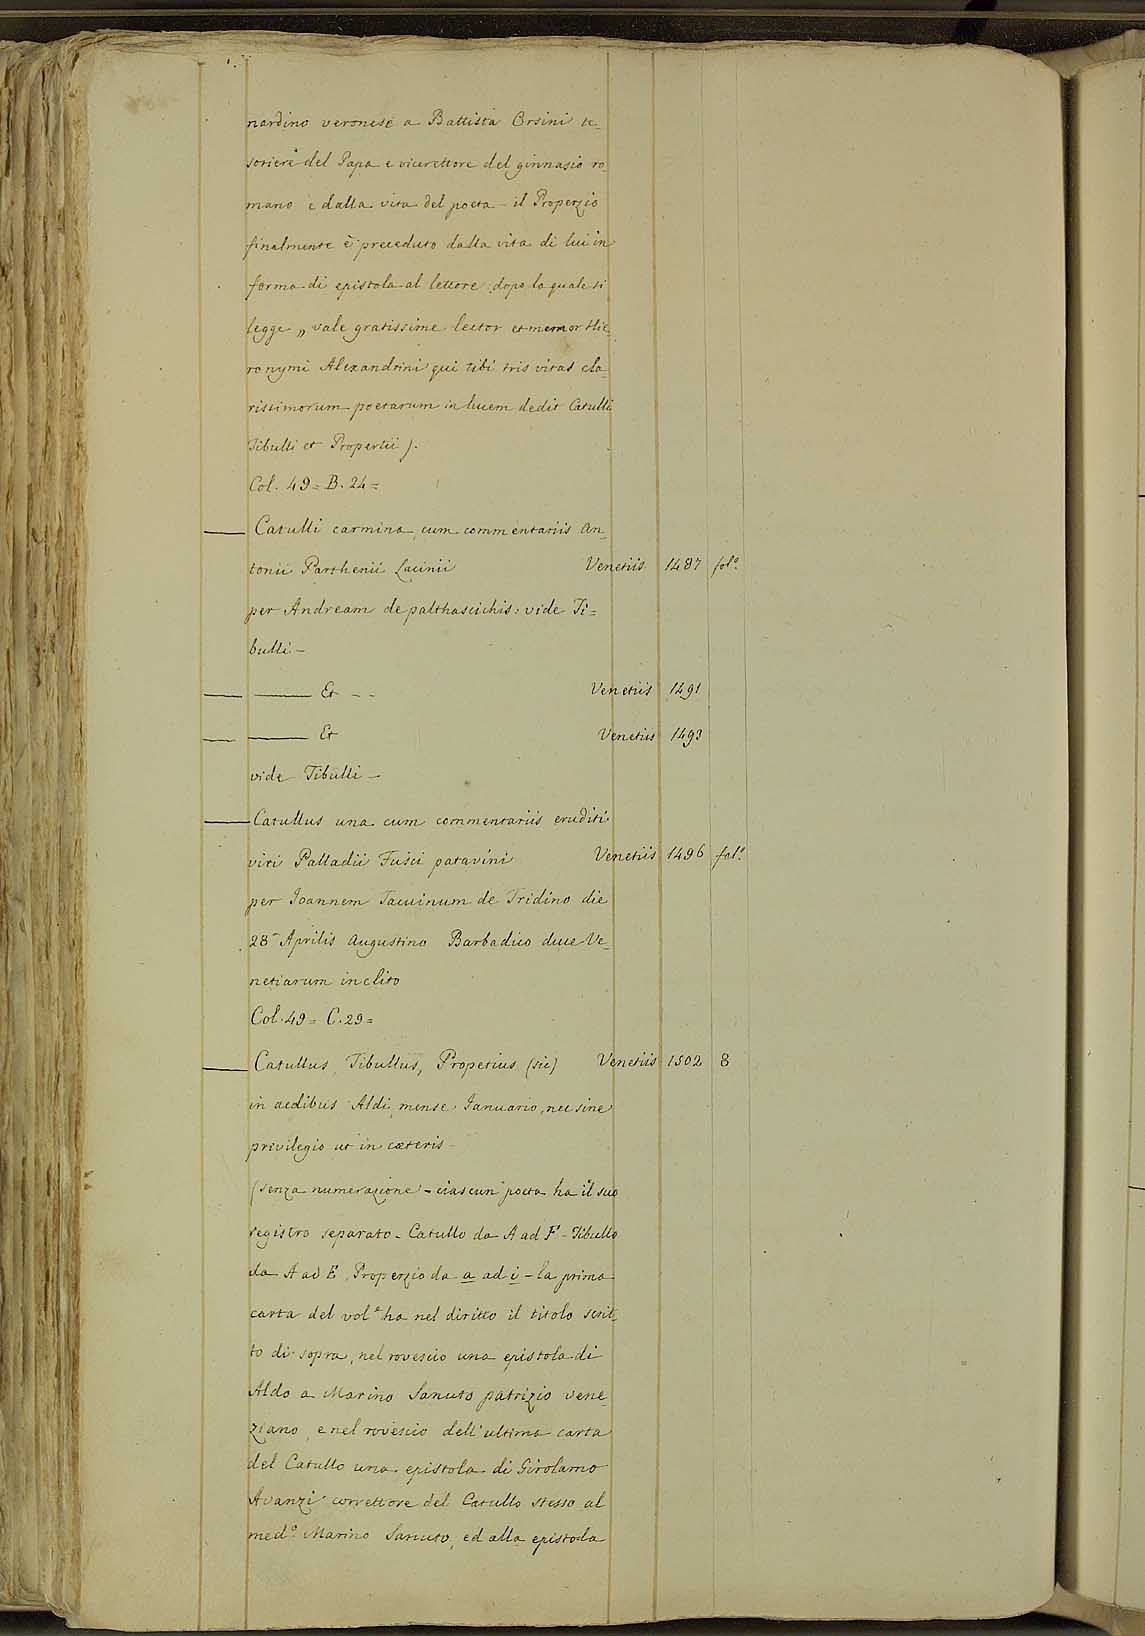 nardino veronese a Battista Orsini te_
soriere del Papa e vicerettore del ginnasio ro_
mano e dalla vita del poeta - il Properzio
finalmente è preceduto dalla vita di lui in
forma di epistola al lettore dopo la quale si
legge „ vale gratissime lector et memor Hie_
ronymi Alexandrini qui tibi tris vitas cla_
rissimorum poetarum in lucem dedit Catulli
Tibulli et Propertii ).
Col. 49 = B. 24 =
—— Catulli carmina cum commentariis An_
tonii Parthenii Lacinii Venetiis 1487 fol.º
per Andream de palthascichis: vide Ti=
bulli —
—— —— Et - - Venetiis 1491
—— —— Et Venetiis 1493
vide Tibulli —
—— Catullus una cum commentariis eruditi
viri Palladii Fusci patavini Venetiis 1496 fol.º
per Joannem Tacuinum de Tridino die
28 Aprilis Augustino Barbadico duce Ve_
netiarum inclito
Col. 49 = C. 29 =
—— Catullus, Tibullus, Propetius (sic) Venetiis 1502 8
in aedibus Aldi, mense Ianuario, nec sine
privilegio ut in cæteris -
(senza numerazione - ciascun poeta ha il suo
registro separato - Catullo da A ad F - Tibullo
da A ad E, Properzio da a ad i - la prima
carta del vol.e ha nel diritto il titolo scrit_
to di sopra, nel rovescio una epistola di
Aldo a Marino Sanuto patrizio vene_
ziano, e nel rovescio dell'ultima carta
del Catullo una epistola di Girolamo
Avanzi correttore del Catullo stesso al
med.º Marino Sanuto, ed alla epistola